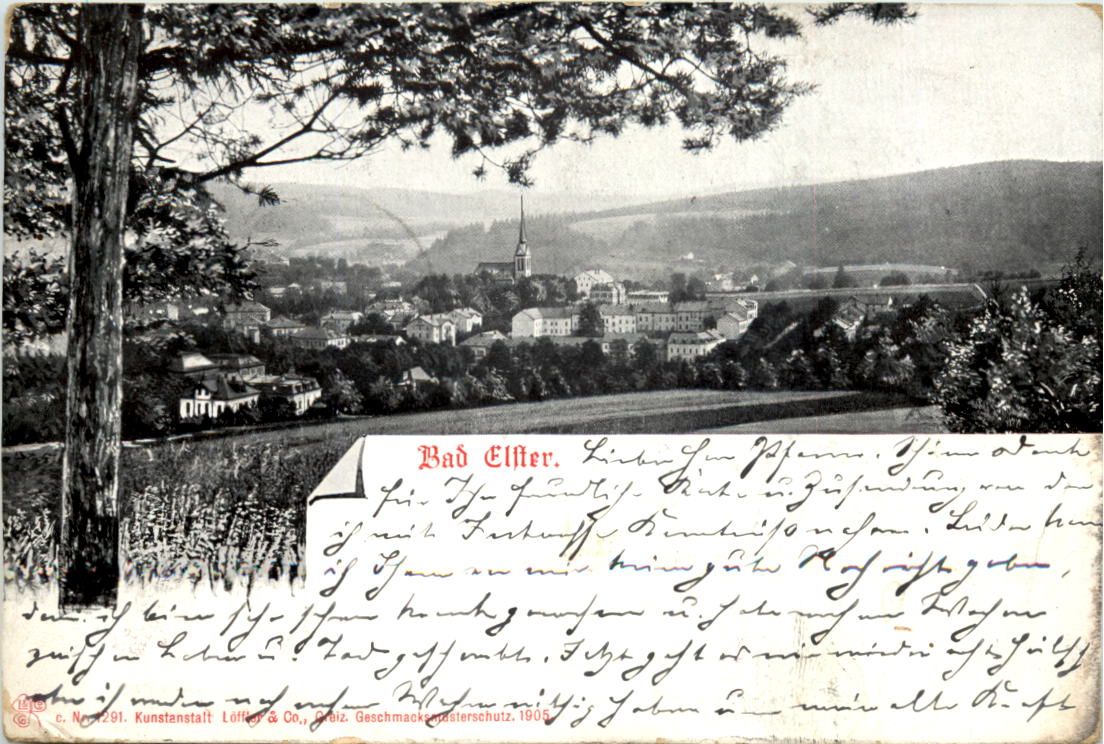 Bad Elster.
Lieber Herr Pfarrer. Schönen Dank
für Ihre freundliche Karte u. Zusendung von der
ich mit Interesse Kenntniß nahm. Leider kann
ich Ihnen von mir keine gute Nachricht geben,
denn ich bin sehr schwer krank gewesen u. habe mehrere Wochen
zwischen Leben u. Tod geschwebt. Jetzt geht es mir wieder
aber ich werde noch mehrere Wochen nöthig haben um meine alte Kraft
c. No. 1291. Kunstanstalt Löffler & Co., Greiz. Geschmacksmusterschutz. 1905.